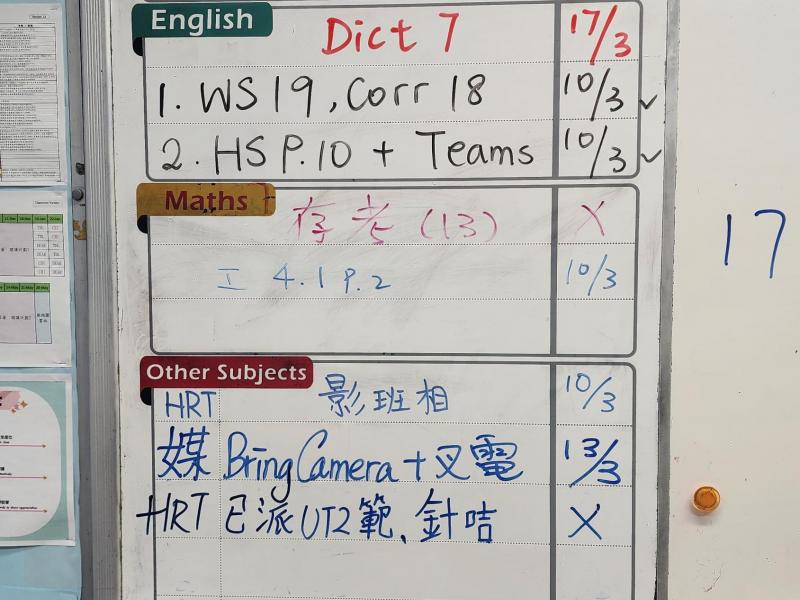 English
Dict 7 17/3
1. WS 19, Corr 18 10/3 ✓
2. HS P.10 + Teams 10/3 ✓
Maths
存考 (13) X
工 4.1 P.2 10/3
17
Other Subjects
HRT 影班相 10/3
媒 Bring Camera + 叉電 13/3
HRT 已派UT2範、針咭 X